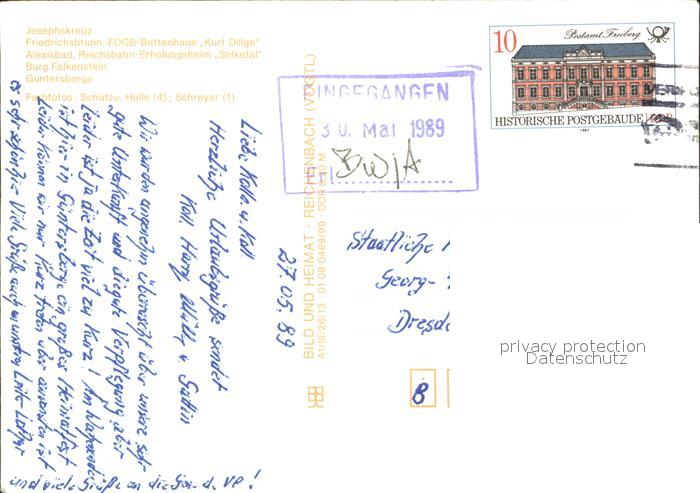 Josephskreuz
Friedrichsbrunn, FDGB-Bettenhaus „Kurt Dillge"
Alexisbad, Reichsbahn-Erholungsheim „Selketal"
Burg Falkenstein
Güntersberge
Farbfotos: Schütze, Halle (4); Schreyer (1)
10
Postamt Freiberg
HISTORISCHE POSTGEBÄUDE DDR
1987
EINGEGANGEN
30. Mai 1989
BW/A
BILD UND HEIMAT · REICHENBACH (VOGTL)
A1/III/26/13 01 08 0469/99 DDR
27.05.89
Liebe Kolln. u. Koll.
Herzliche Urlaubsgrüße sendet
Koll. Harry u. Gattin
Wir wurden angenehm überrascht über unsere sehr
gute Unterkunft und die gute Verpflegung, aber
leider ist ja die Zeit viel zu kurz! Am
ist hier in Güntersberge ein großes Heimatfest
leider können wir nur kurz aber ansonsten ist
es sehr schön hier. Viele Grüße auch an unseren
und viele Grüße an die VP!
Staatliche
Georg-
Dresd
B
privacy protection
Datenschutz